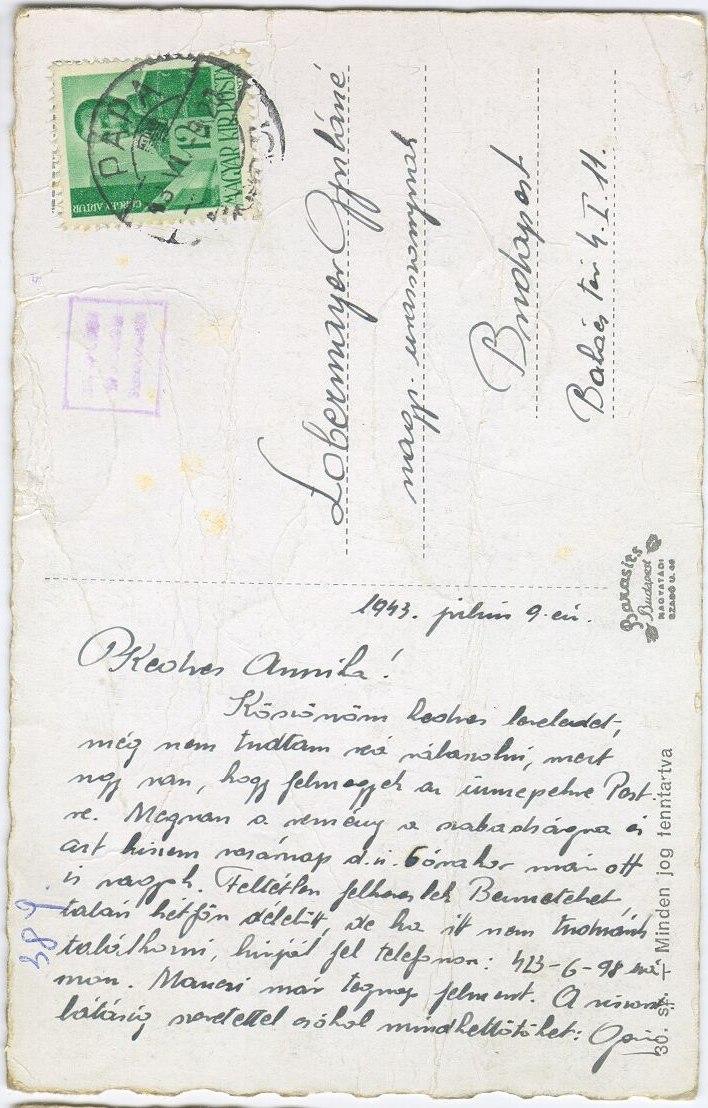 12
MAGYAR KIR. POSTA
GÖRGEY ARTUR
PADA
Lobermayer Gyuláné
Budapest
Bakács tér 4. I. 11.
Barasits
Budapest
NAGYATÁDI
SZABÓ U. 49
1943. julius 9.-én.
Kedves Annika!
Köszönöm kedves leveledet,
még nem tudtam reá válaszolni, mert
úgy van, hogy felmegyek az ünnepekre Pest-
re. Megvan a remény a szabadságra és
azt hiszem vasárnap d.u. 6 órakor már ott
is vagyok. Feltétlen felkereslek Benneteket,
talán hétfőn délelőtt, de ha itt nem tudnánk
találkozni, hívjál fel telefonon: 423-6-98
Mancsi már tegnap felment. A viszont-
látásig szeretettel csókol mindkettőtöket:
30. sz. — Minden jog fenntartva